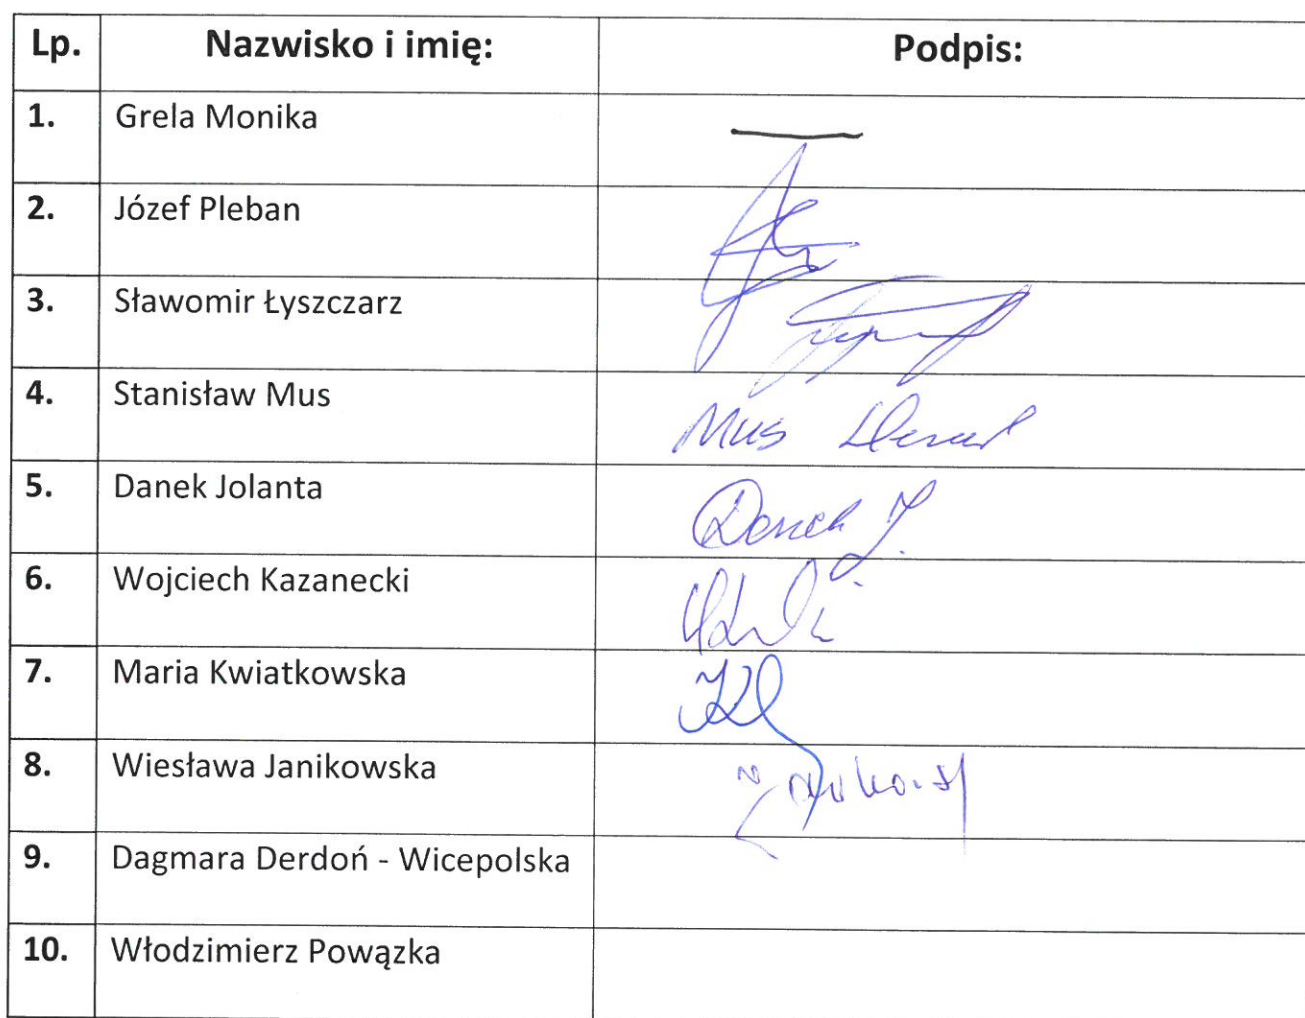 Lp. Nazwisko i imię: Podpis:
1. Grela Monika
2. Józef Pleban
3. Sławomir Łyszczarz
4. Stanisław Mus Mus
5. Danek Jolanta Danek J.
6. Wojciech Kazanecki
7. Maria Kwiatkowska
8. Wiesława Janikowska
9. Dagmara Derdoń - Wicepolska
10. Włodzimierz Powązka